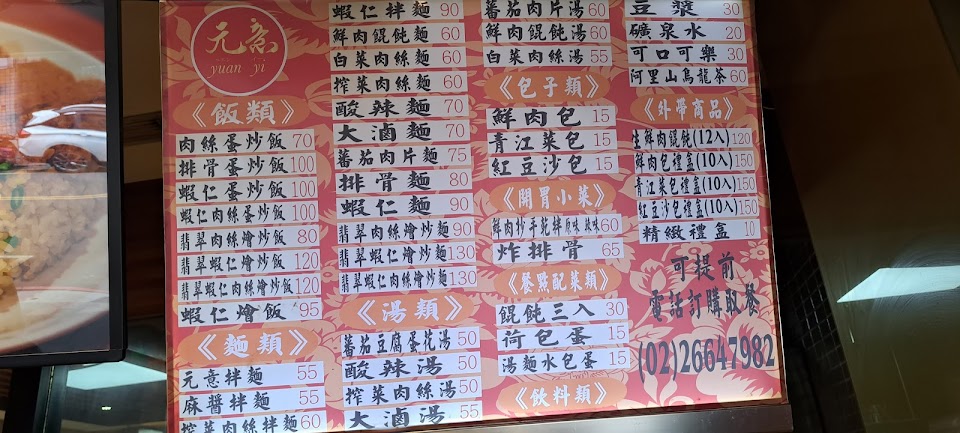 元意
yuan yi
《飯類》
肉絲蛋炒飯 70
排骨蛋炒飯 100
蝦仁蛋炒飯 100
蝦仁肉絲蛋炒飯 100
翡翠肉絲燴炒飯 80
翡翠蝦仁燴炒飯 120
翡翠蝦仁肉絲燴炒飯 120
蝦仁燴飯 95
《麵類》
元意拌麵 55
麻醬拌麵 55
榨菜肉絲拌麵 60
蝦仁拌麵 90
鮮肉餛飩麵 60
白菜肉絲麵 60
榨菜肉絲麵 60
酸辣麵 70
大滷麵 70
蕃茄肉片麵 75
排骨麵 80
蝦仁麵 90
翡翠肉絲燴炒麵 90
翡翠蝦仁燴炒麵 130
翡翠蝦仁肉絲燴炒麵 130
《湯類》
蕃茄豆腐蛋花湯 50
酸辣湯 50
榨菜肉絲湯 50
大滷湯 55
蕃茄肉片湯 60
鮮肉餛飩湯 60
白菜肉絲湯 55
《包子類》
鮮肉包 15
青江菜包 15
紅豆沙包 15
《開胃小菜》
鮮肉抄手乾拌 原味 辣味 60
炸排骨 65
《餐點配菜類》
餛飩三入 30
荷包蛋 15
湯麵水包蛋 15
《飲料類》
豆漿 30
礦泉水 20
可口可樂 30
阿里山烏龍茶 60
《外帶商品》
生鮮肉餛飩(12入) 120
鮮肉包禮盒(10入) 150
青江菜包禮盒(10入) 150
紅豆沙包禮盒(10入) 150
精緻禮盒 10
可提前
電話訂購取餐
(02)26647982